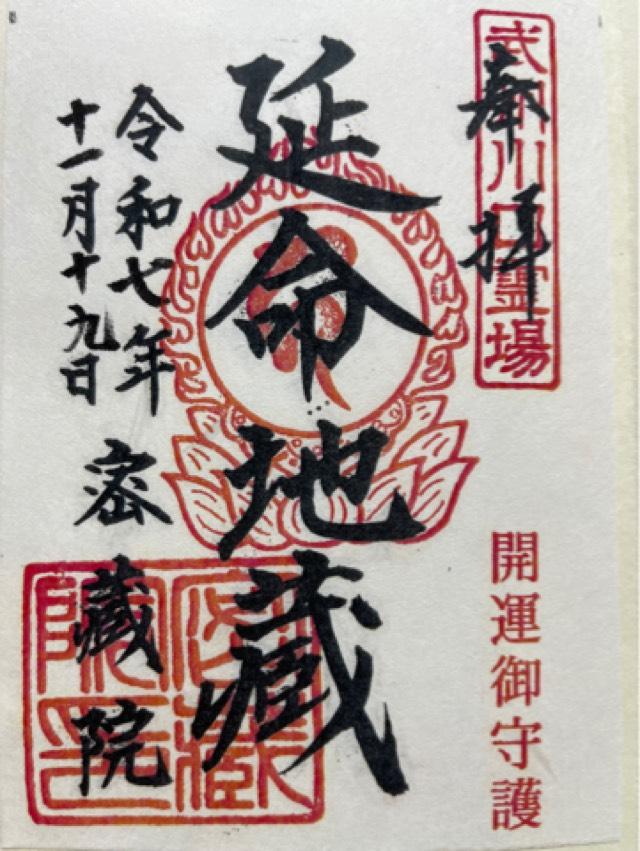 奉拝
川口霊場
開運御守護
延命地蔵
令和七年
十一月十九日
密蔵院
密藏院印